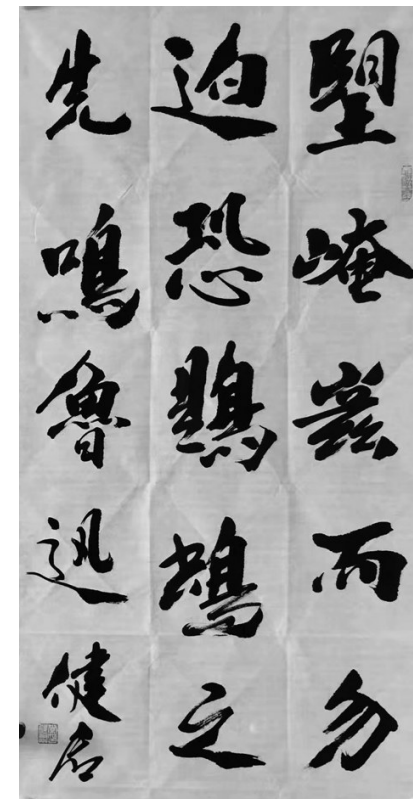 望崦嵫而勿
迫恐鶗鴂之
先鳴魯迅健石